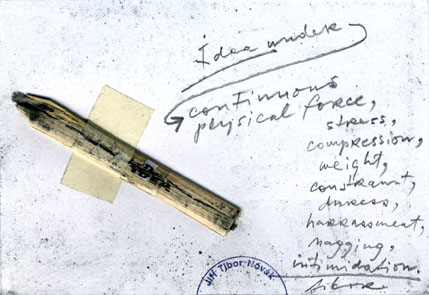 Idea under
continuous
physical force,
stress,
compression,
weight,
constraint,
duress,
harrassment,
nagging,
intimidation.
tibor
Jiri Tibor Novak